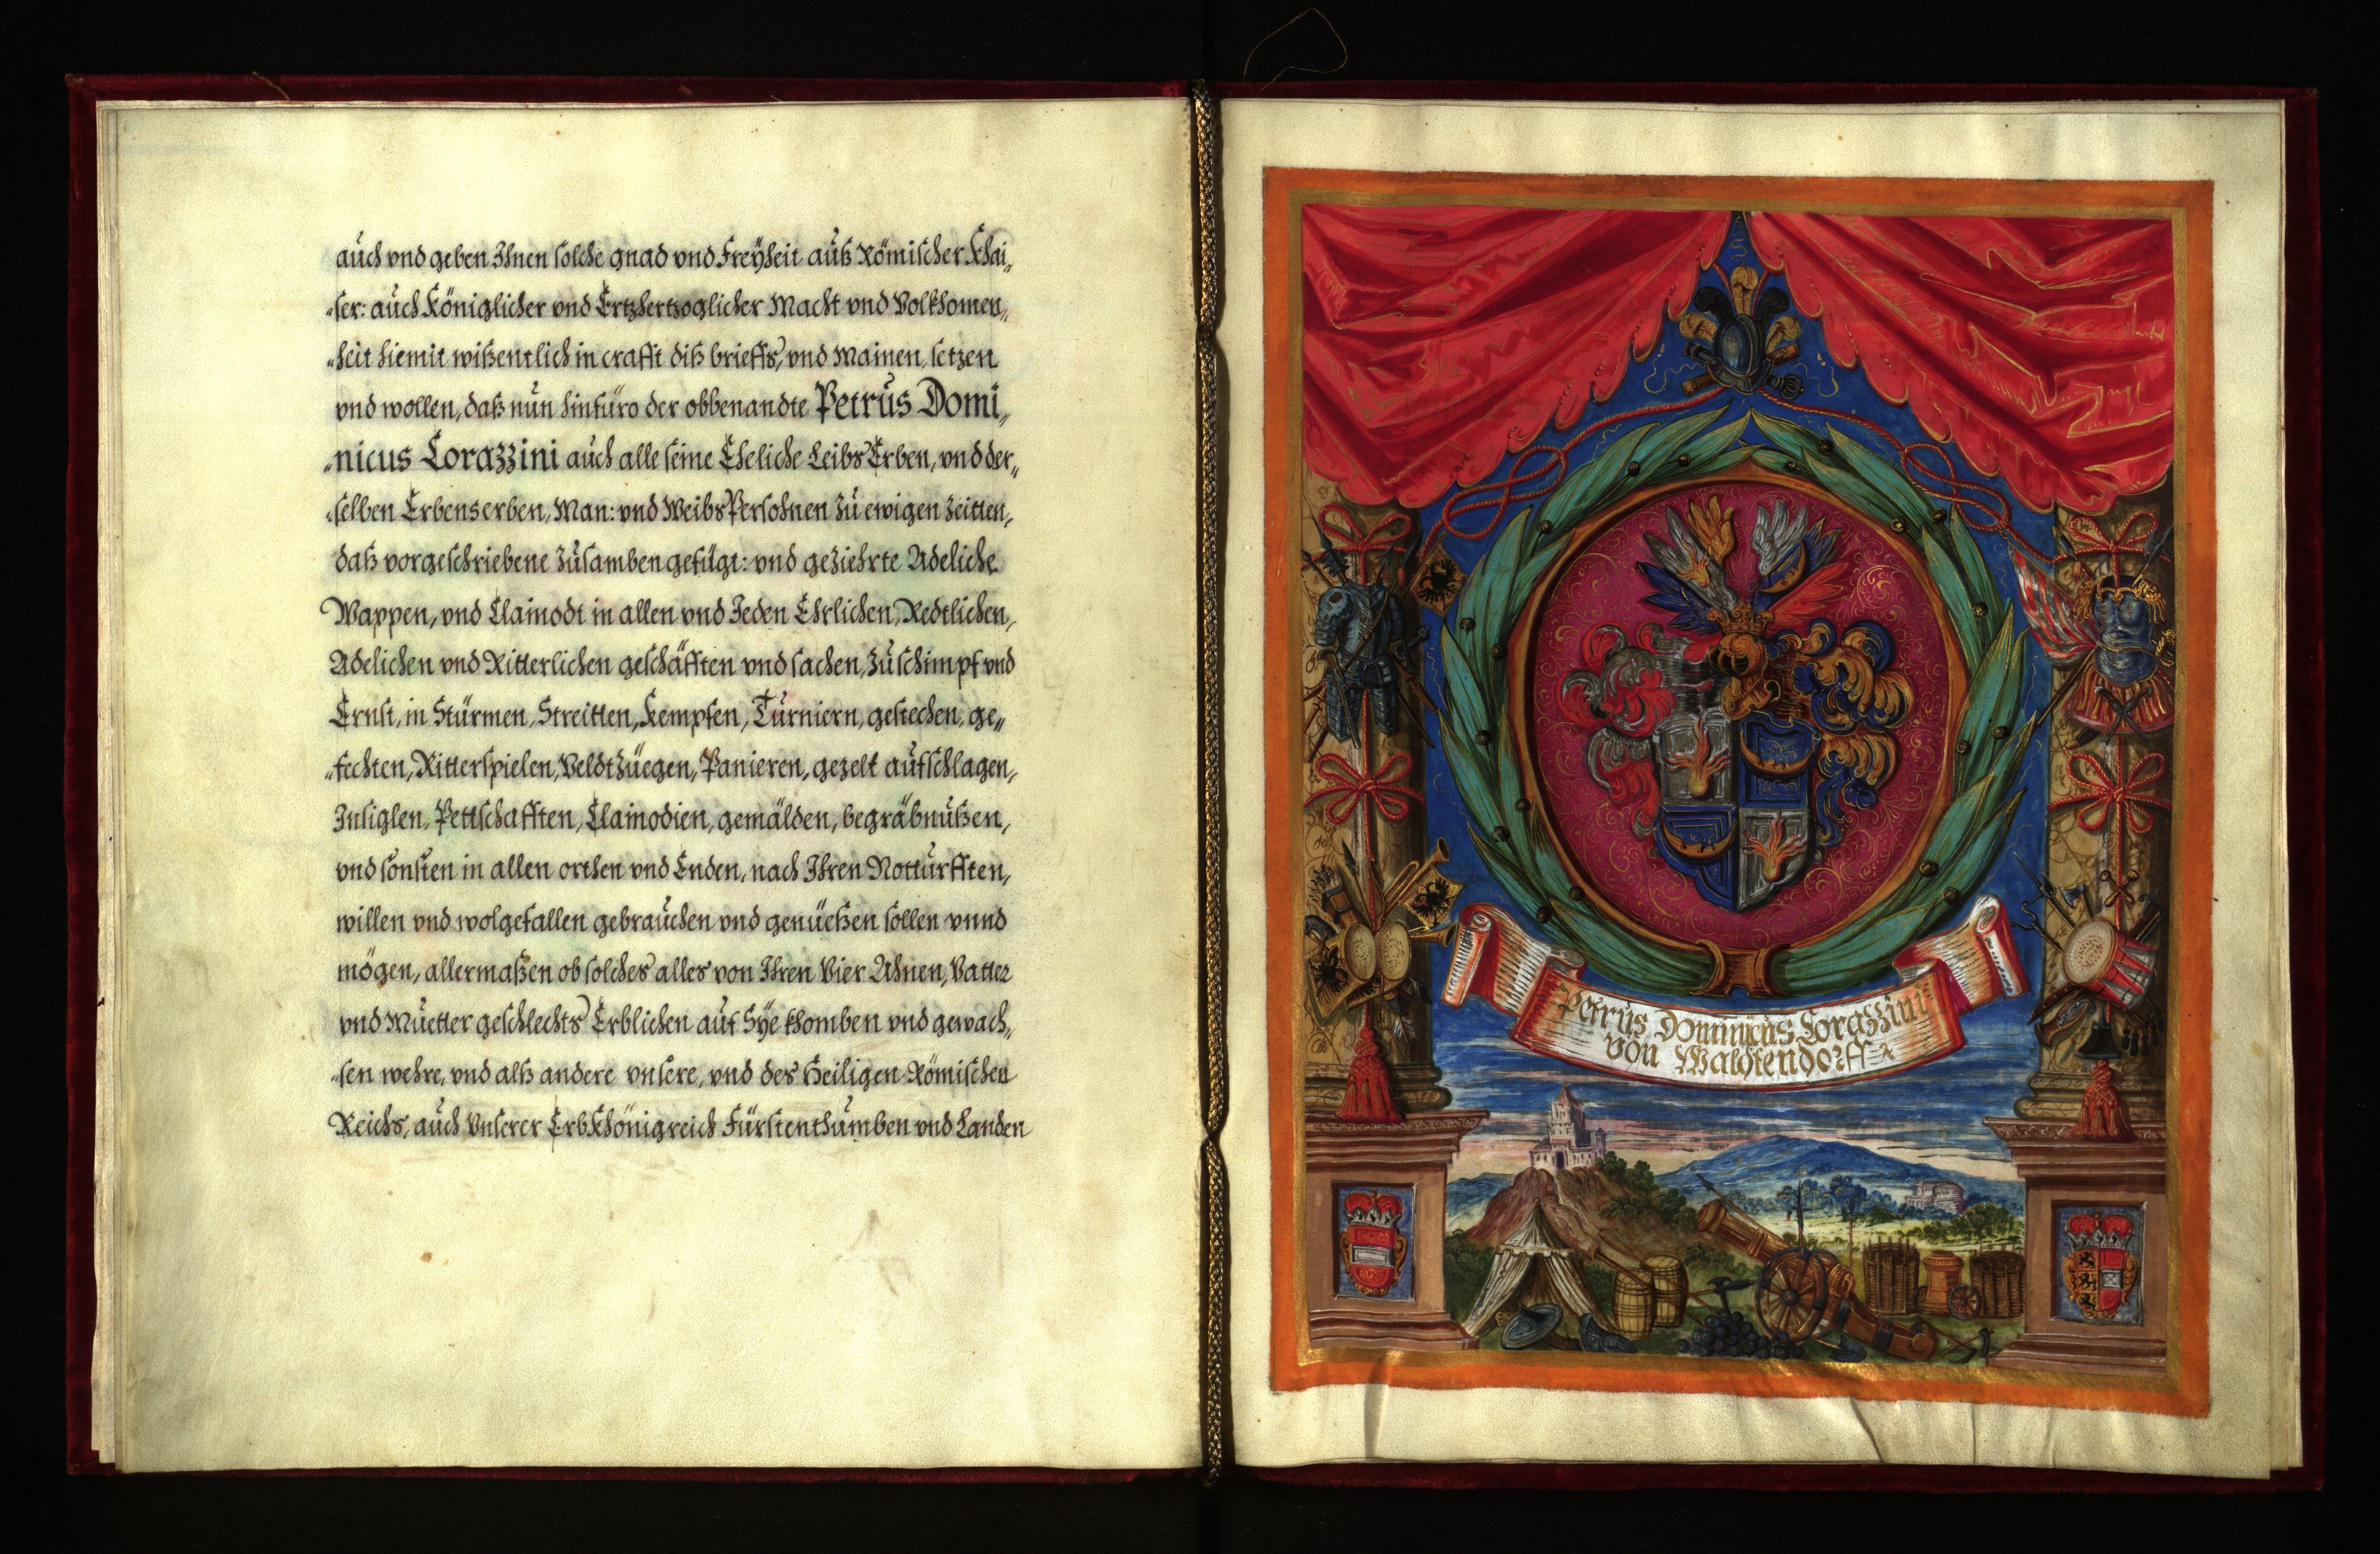 auch vnd geben Ihnen solche gnad vnd Freÿheit auß Römischer Khai„
„ser: auch Königlicher vnd Ertzhertzoglicher Macht vnd Volkhomen„
„heit hiemit wißentlich in crafft diß brieffs, vnd Mainen, setzen
vnd wollen, daß nun hinfüro der obbenandte Petrus Domi„
„nicus Corazzini auch alle seine Eheliche Leibs Erben, vnd der„
„selben Erbenserben, Man: vnd Weibs Persohnen Zu ewigen Zeitten,
daß vorgeschriebene Zusamben gefügt: vnd geziehrte Adeliche
Wappen, vnd Clainodt in allen vnd Jeden Ehrlichen, Redtlichen,
Adelichen vnd Ritterlichen geschäfften vnd sachen, Zu schimpf vnd
Ernst, in Stürmen, Streitten, Kempfen, Turniern, gestechen, ge„
„fechten, Ritterspielen, Veldtzüegen, Panieren, gezelt aufschlagen,
Insiglen, Pettschafften, Clainodien, gemälden, begräbnußen,
vnd sonsten in allen orthen vnd Enden, nach Ihren Notturfften,
willen vnd wolgefallen gebrauchen vnd genüeßen sollen vnnd
mögen, allermaßen ob solches alles von Ihren Vier Ahnen, Vatter
vnd Muetter geschlechts Erblichen auf Sÿe khomben vnd gewach„
„sen wehre, vnd alß andere vnsere, vnd des Heiligen Römischen
Reichs, auch Vnserer Erb Khönigreich Fürstenthumben vnd Landen
Petrus Dominicus Corazzini
von Waldtendorff